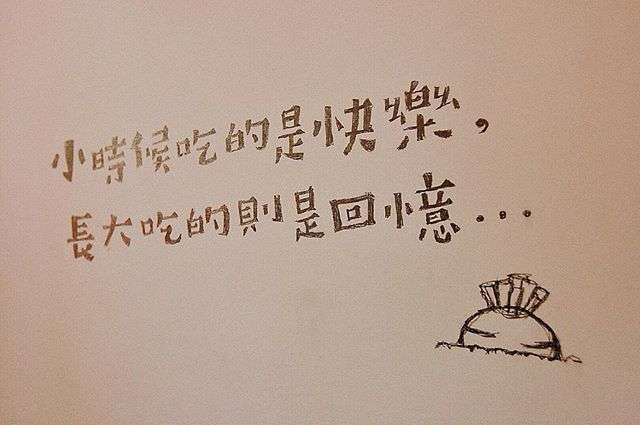 小時候吃的是快樂，
長大吃的則是回憶...